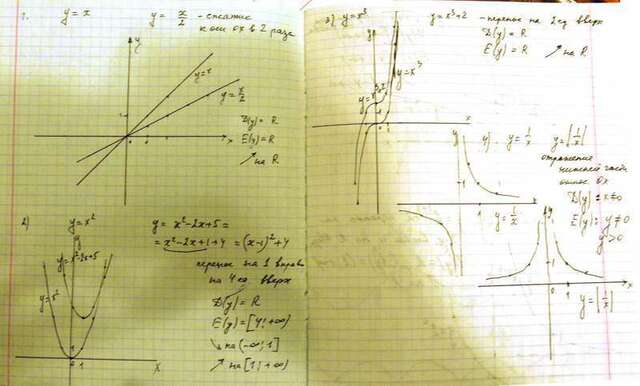 1. y = x
y = x/2 - сжатие
к оси ox в 2 раза
y
y=x
y=x/2
x
D(y) = R
E(y) = R
↗ на R
2) y = x²
y = x²-2x+5 =
= x²-2x+1+4 = (x-1)²+4
перенос на 1 вправо
на 4 ед. вверх
D(y) = R
E(y) = [4; +∞)
↘ на (-∞; 1]
↗ на [1; +∞)
y
y=x²-2x+5
y=x²
1
0 1
x
3) y = x³
y = x³+2 - перенос на 2 ед вверх
D(y) = R
E(y) = R ↗ на R
y
y=x³+2
y=x³
x
4) y = 1/x
y = |1/x|
отражение
нижней части
относ. ox
D(y): x≠0
E(y): y≠0
y>0
y
1
1
x
y = 1/x
y
1
1
x
y = |1/x|